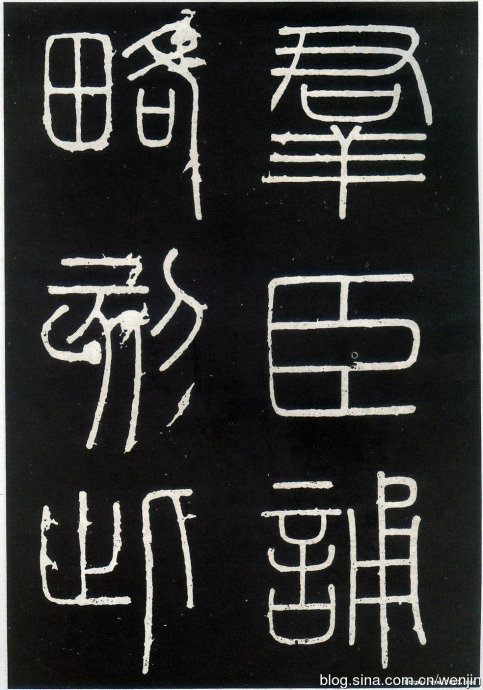 羣臣誦
略刻此
blog.sina.com.cn/wenjin